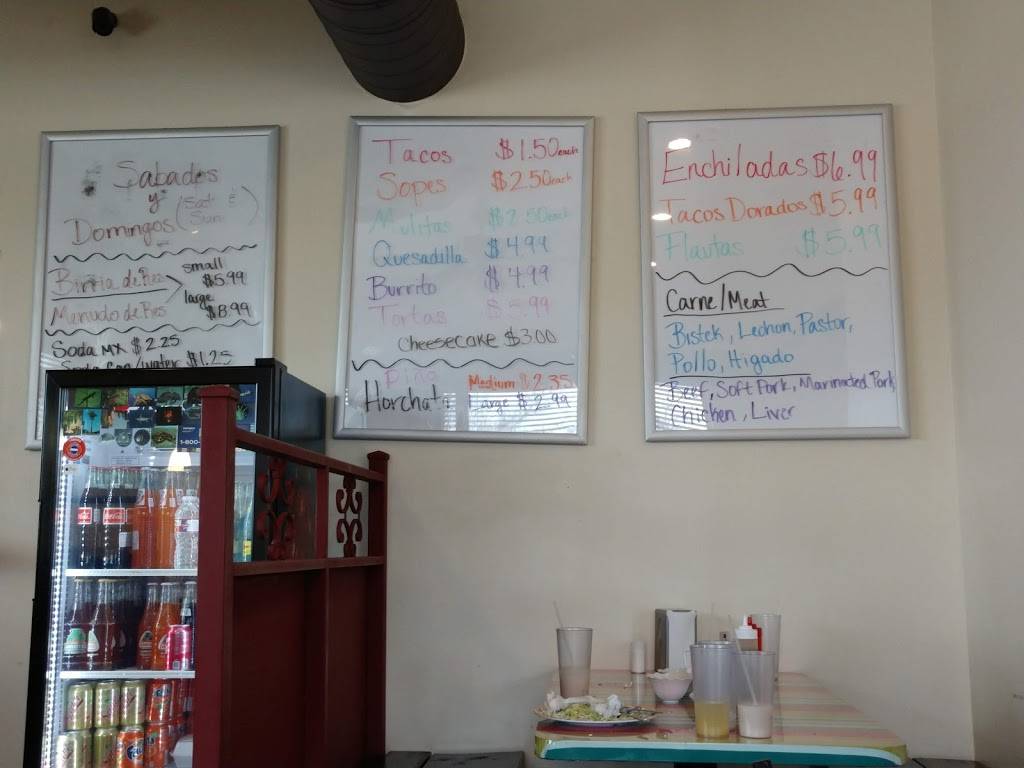 Sabados
y
Domingos (Sat &
Sun)
Birria de Res small $5.99
Menudo de Res large $8.99
Soda MX $2.25
Soda Can/Water $1.25
Tacos $1.50 each
Sopes $2.50 each
Mulitas $2.50 each
Quesadilla $4.99
Burrito $4.99
Tortas $5.99
Cheesecake $3.00
Piña Medium $2.35
Horchata Large $2.99
Enchiladas $6.99
Tacos Dorados $5.99
Flautas $5.99
Carne/Meat
Bistek, Lechon, Pastor,
Pollo, Higado
Beef, Soft Pork, Marinaded Pork
Chicken, Liver
1-800-
Fanta